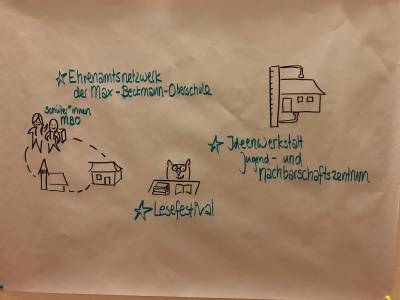 ☆ Ehrenamtsnetzwerk
der Max-Beckmann-Oberschule
Schüler*innen
MBO
☆ Ideenwerkstatt
Jugend- und
Nachbarschaftszentrum
☆ Lesefestival